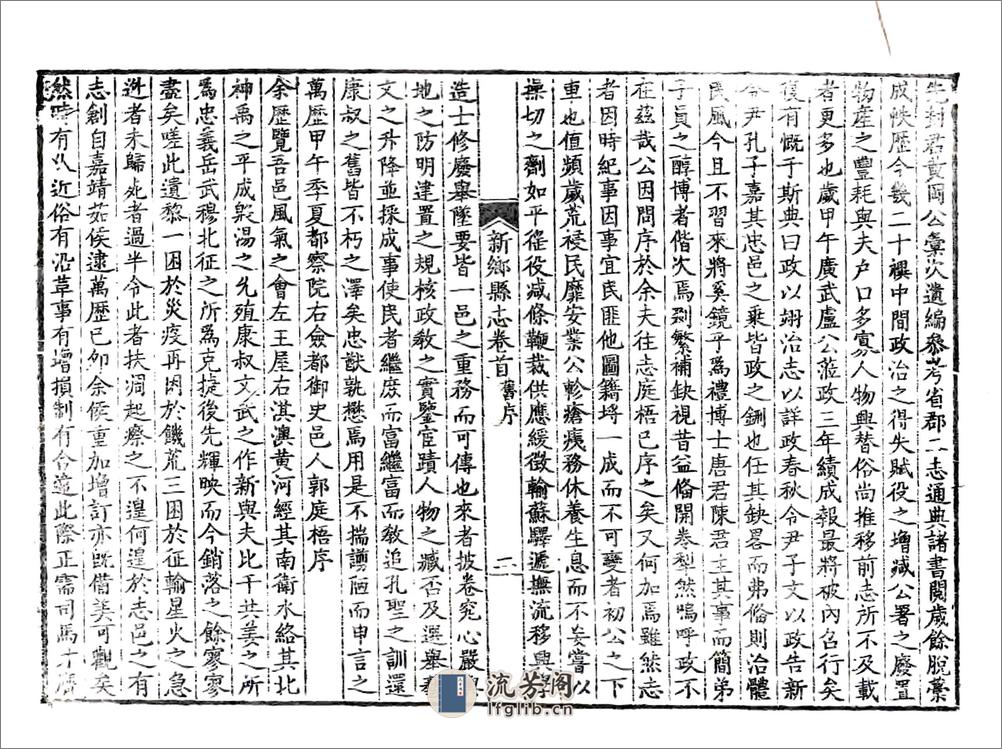 先封君黃岡公彙次遺編參考省郡二志通典諸書閱歲餘脫藁
成帙歷今幾二十禩中間政治之得失賦役之增减公署之廢置
物產之豐耗與夫戶口多寡人物興替俗尚推移前志所不及載
者更多也歲甲午廣武盧公蒞政三年績成報最將被內召行矣
復有慨于斯典曰政以翊治志以詳政春秋令尹子文以政告新
令尹孔子嘉其忠邑之乘皆政之鉶也任其缺畧而弗俻則治體
民風今且不習來將奚鏡乎爲禮博士唐君陳君主其事而簡弟
子員之醇博者偕次焉剗繁補缺視昔益俻開卷犁然嗚呼政不
在茲哉公因問序於余夫往志庭梧已序之矣又何加焉雖然志
者因時紀事因事宜民匪他圖籍埒一成而不可變者初公之下
車也值頻歲荒祲民靡安業公軫瘡痍務休養生息而不妄嘗以
操切之劑如平徭役减條鞭裁供應緩徵輸蘇驛遞撫流移興學
新鄉縣志卷首 舊序 二
造士修廢舉墜要皆一邑之重務而可傳也來者披卷究心嚴
地之防明建置之規核政敎之實鑒宦蹟人物之臧否及選舉
文之升降並採成事使民者繼庶而富繼富而敎追孔聖之訓還
康叔之舊皆不朽之澤矣忠猷孰懋焉用是不揣謭陋而申言之
萬歷甲午季夏都察院右僉都御史邑人郭庭梧序
余歷覽吾邑風氣之會左王屋右淇澳黃河經其南衛水絡其北
神禹之平成殷湯之允殖康叔文武之作新與夫比干共姜之所
爲忠義岳武穆北征之所爲克捷後先輝映而今銷落之餘寥寥
盡矣嗟此遺黎一困於災疫再困於饑荒三困於征輸星火之急
逃者未歸死者過半令此者扶凋起瘵之不遑何遑於志邑之有
志創自嘉靖茹侯逮萬歷己卯余侯重加增訂亦既借美可觀矣
然時有久近俗有沿革事有增損制有合遣此際正需司馬才